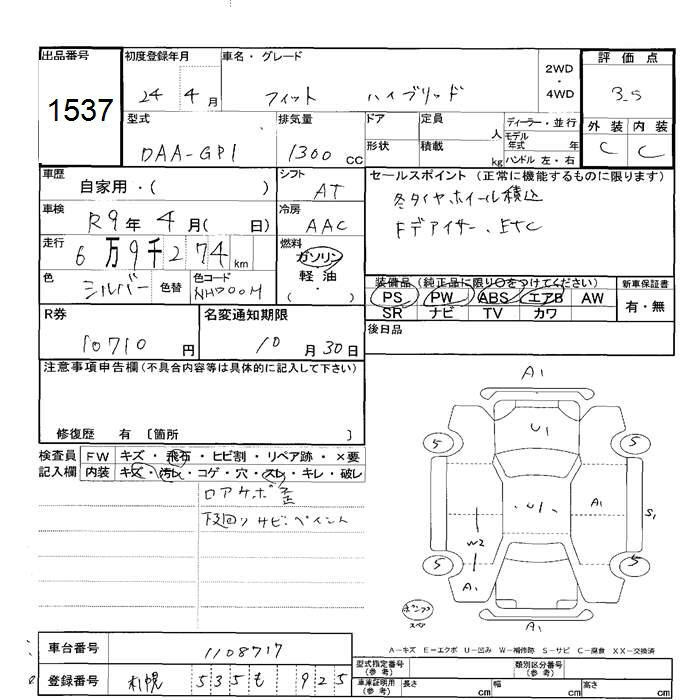 出品番号
1537
初度登録年月
24 4月
車名・グレード
フィット ハイブリッド
2WD
・
4WD
評価点
3.5
外装 内装
C C
型式
DAA-GP1
排気量
1300 cc
ドア
定員 人
形状
積載 kg
ディーラー・並行
モデル年式 年
ハンドル 左・右
車歴
自家用・( )
シフト
AT
車検
R9年 4月( 日)
冷房
AAC
走行
6万9千274km
燃料
ガソリン
軽油
( ・ )
色
シルバー
色替
色コード
NH700M
セールスポイント (正常に機能するものに限ります)
冬タイヤホイール積込
Fデアイサー、ETC
装備品 (純正品に限り○をつけてください)
PS PW ABS エアB AW
SR ナビ TV カワ
新車保証書
有・無
後日品
R券
10710円
名変通知期限
10月30日
注意事項申告欄(不具合内容等は具体的に記入して下さい)
修復歴 有 〔箇所 〕
検査員
記入欄
FW キズ・飛石・ヒビ割・リペア跡・×要
内装 キズ・汚レ・コゲ・穴・スレ・キレ・破レ
ロアサポ歪
下回りサビ・ペイント
A1
U1
5 5
U1
A1
S1
W2
5 5
A1
A1
スペア
A-キズ E=エクボ U-凹み W-補修跡 S-サビ C-腐食 XX-交換済
車台番号
1108717
登録番号
札幌 535 も 925
型式指定番号
(参考)
類別区分番号
(参考)
車庫証明用
(参考)
長さ cm
幅 cm
高さ cm